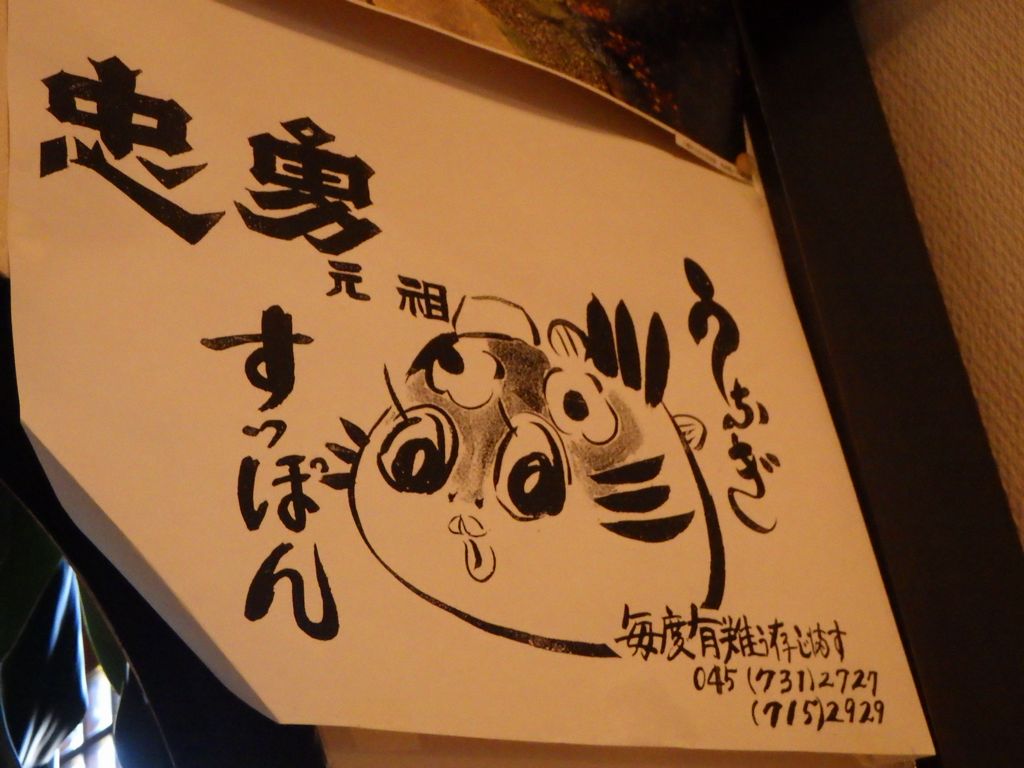 忠勇
元祖
うなぎ
すっぽん
毎度有難う存じます
045(731)2727
(715)2929